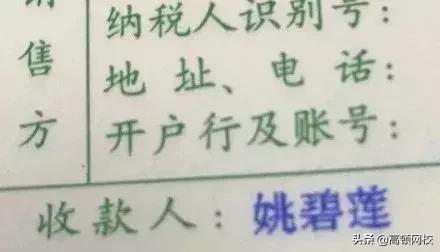 售
方
纳税人识别号：
地 址、电 话：
开户行及账号：
收款人：姚碧莲
头条 @高顿网校